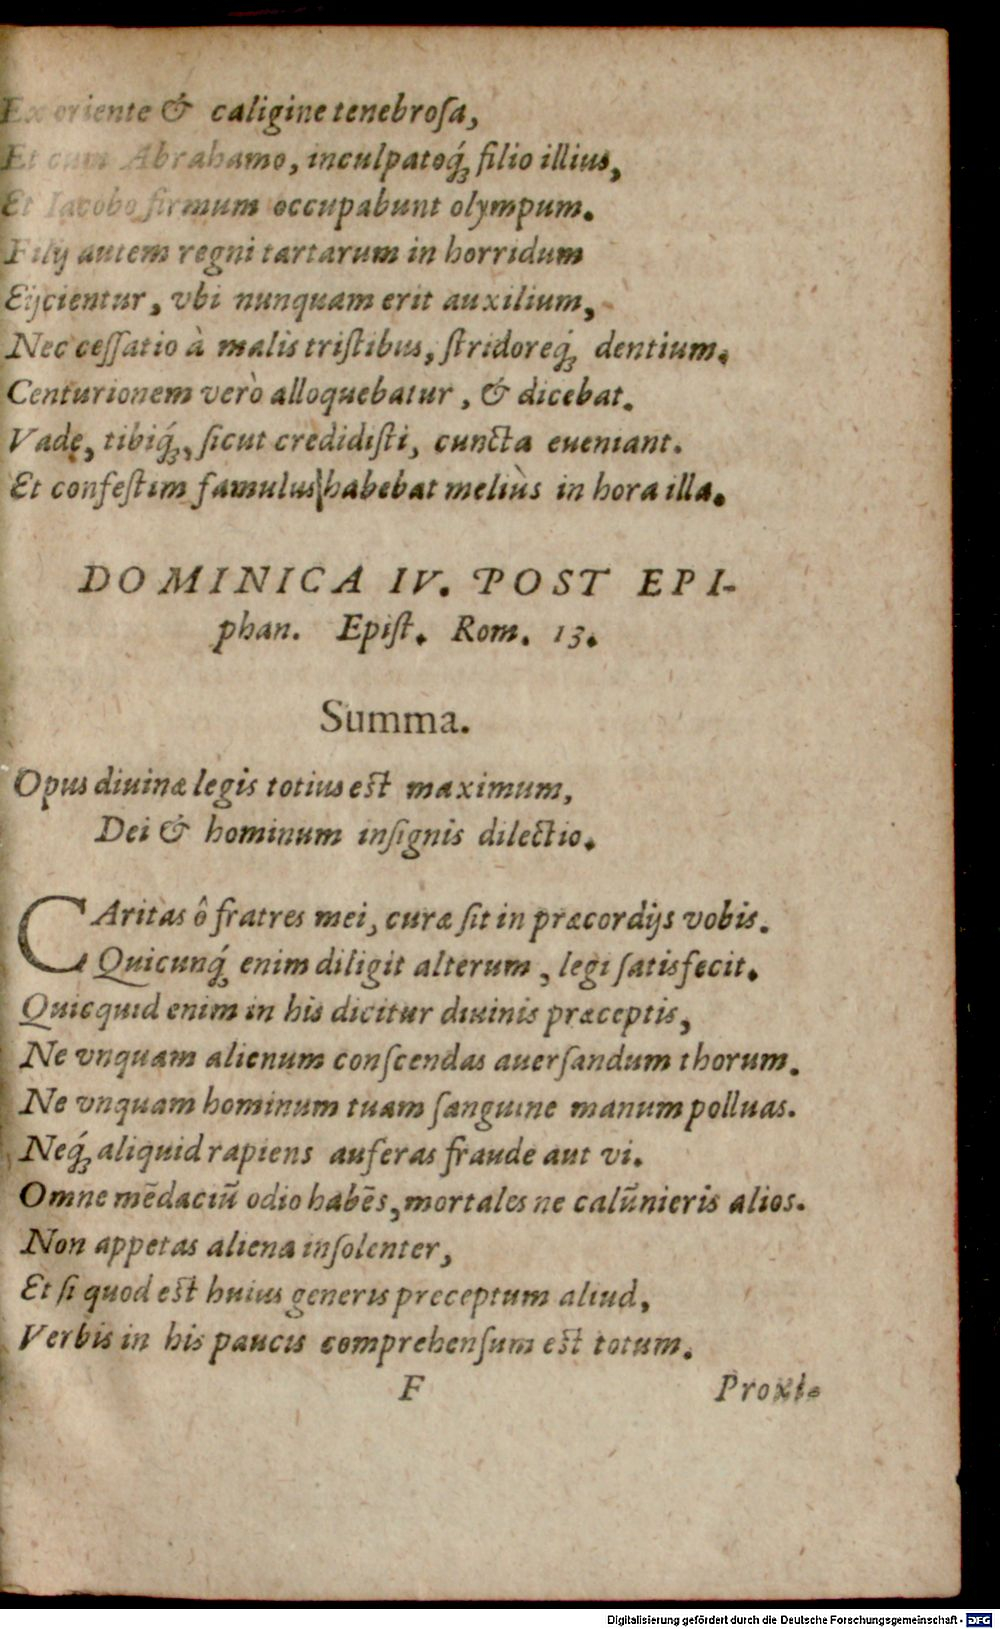 Ex oriente & caligine tenebroſa,
Et cum Abrahamo, inculpatoq́; filio illius,
Et Iacobo firmum occupabunt olympum.
Filij autem regni tartarum in horridum
Eijcientur, vbi nunquam erit auxilium,
Nec ceſſatio à malis triſtibus, ſtridoreq́; dentium.
Centurionem verò alloquebatur, & dicebat.
Vade, tibiq́;, ſicut credidiſti, cuncta eueniant.
Et confeſtim famulus habebat meliùs in hora illa.
DOMINICA IV. POST EPI-
phan. Epiſt. Rom. 13.
Summa.
Opus diuinæ legis totius est maximum,
Dei & hominum inſignis dilectio.
CAritas ô fratres mei, curæ ſit in præcordijs vobis.
Quicunq́; enim diligit alterum, legi ſatisfecit.
Quicquid enim in his dicitur diuinis præceptis,
Ne vnquam alienum conſcendas auerſandum thorum.
Ne vnquam hominum tuam ſanguine manum polluas.
Neq́; aliquid rapiens auferas fraude aut vi.
Omne mēdaciū odio habēs, mortales ne calūnieris alios.
Non appetas aliena inſolenter,
Et ſi quod est huius generis preceptum aliud,
Verbis in his paucis comprehenſum est totum.
F Proxi-
Digitalisierung gefördert durch die Deutsche Forschungsgemeinschaft - DFG